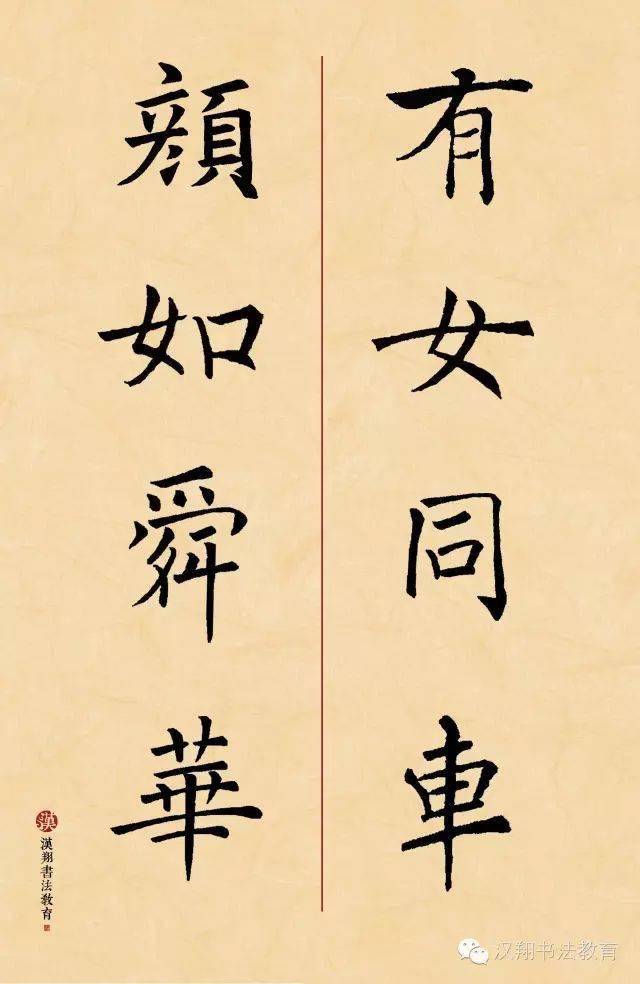 有女同車
顔如舜華
漢
漢翔書法教育
汉翔书法教育